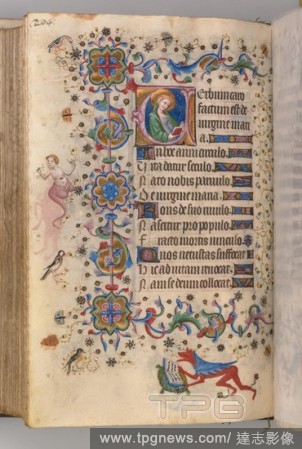 204
Verbum caro
factum est de
virgine mari
a.
In hoc anni circulo.
Vita datur seculo.
Nato nobis parvulo.
De virgine maria.
Fons de suo rivulo.
Nascetur pro populo.
Fracto mortis vinculo.
Quos vetustas suffocat.
Hic ad vitam revocat.
Nam se deum collocat.
TPG
www.tpgnews.com/達志影像